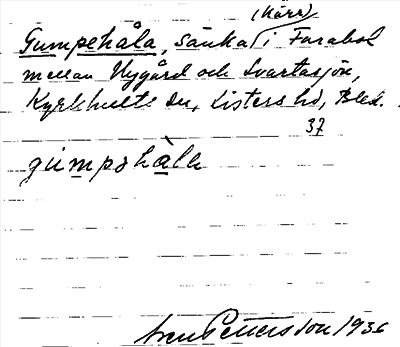 (Kärr)
Gumpehåla, sänka i Farabol
mellan Nygård och Svartasjön,
Kyrkhults sn, Listers hd, Blek.
37
gumpəhàla
Sven Pettersson 1936